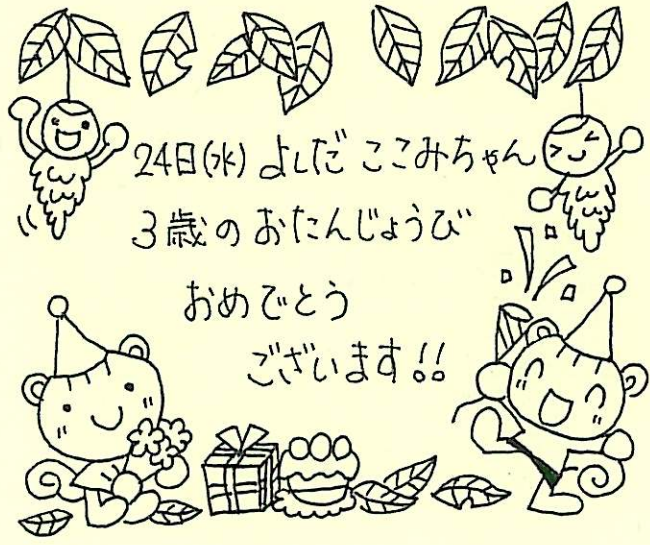 24日(水) よしだ ここみちゃん
3歳の おたんじょうび
おめでとう
ございます!!